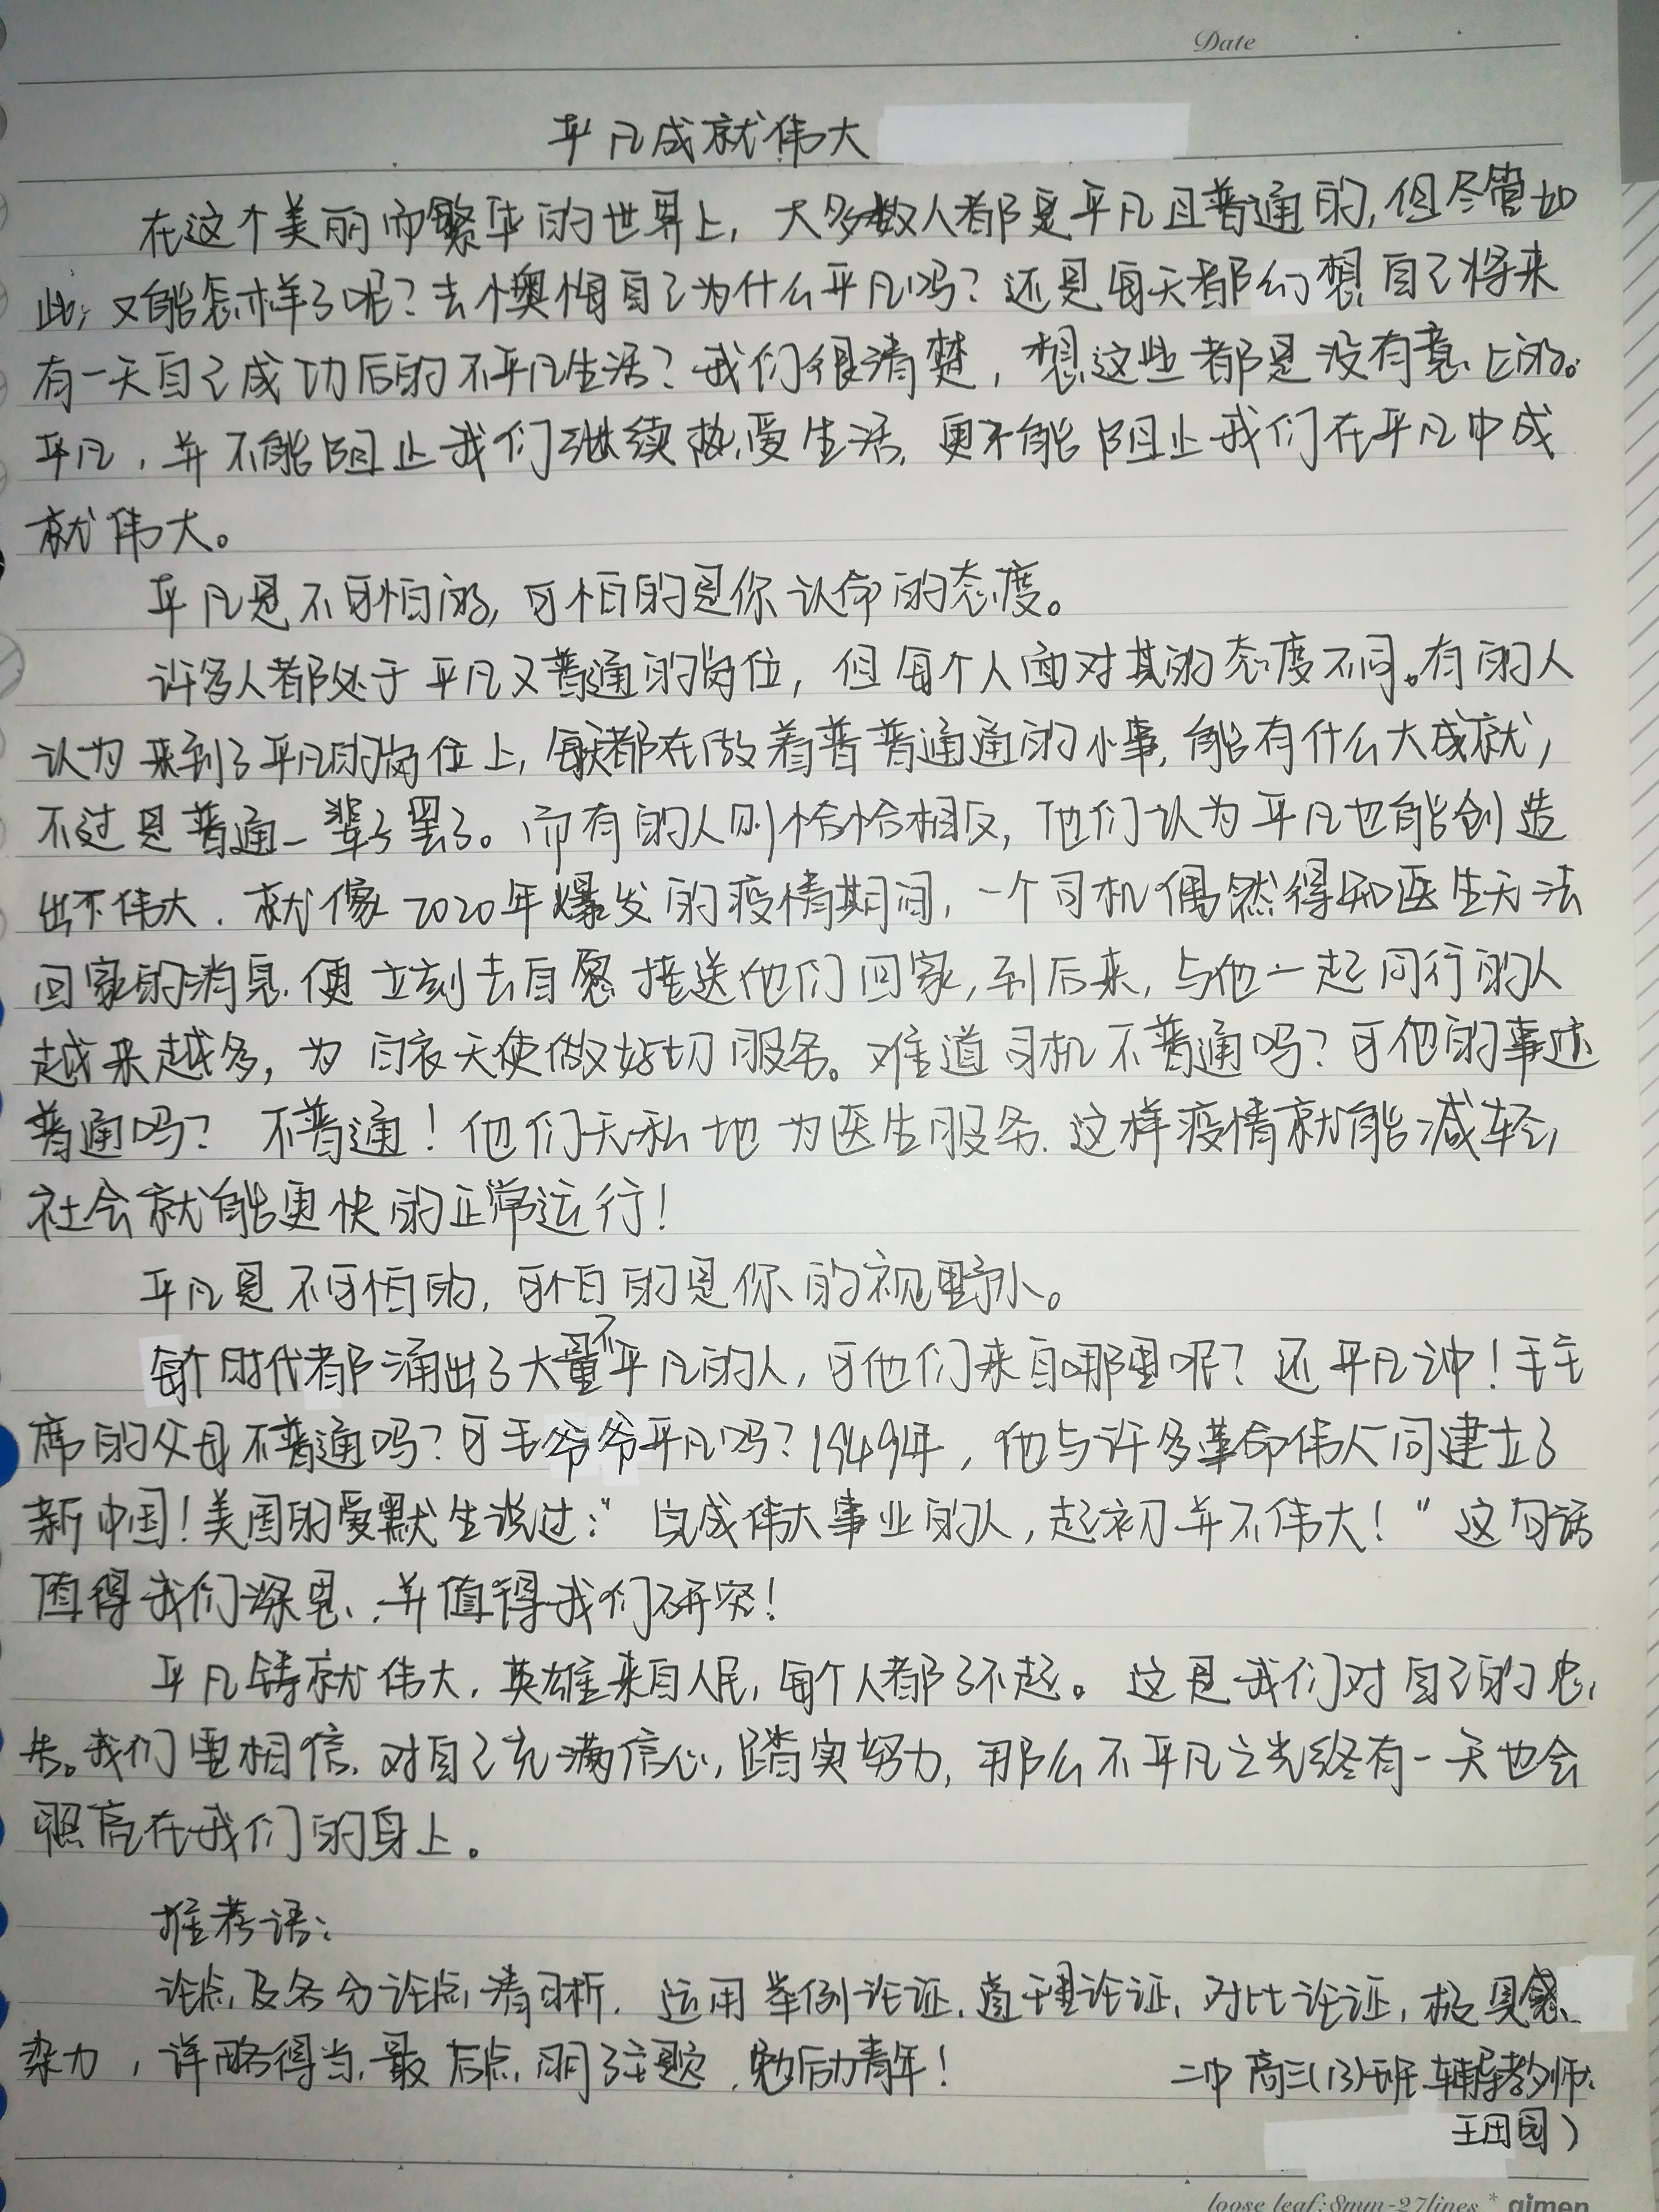 Date
平凡成就伟大
在这个美丽而繁华的世界上，大多数人都是平凡且普通的，但尽管如
此，又能怎样了呢？去懊悔自己为什么平凡吗？还是每天都幻想自己将来
有一天自己成功后的不平凡生活？我们很清楚，想这些都是没有意义的。
平凡，并不能阻止我们继续热爱生活，更不能阻止我们在平凡中成
就伟大。
平凡是不可怕的，可怕的是你认命的态度。
许多人都处于平凡又普通的岗位，但每个人面对其的态度不同。有的人
认为来到了平凡的岗位上，每天都在做着普普通通的小事，能有什么大成就，
不过是普通一辈子罢了。而有的人则恰恰相反，他们认为平凡也能创造
出不伟大，就像2020年爆发的疫情期间，一个司机偶然得知医生无法
回家的消息，便立刻去自愿接送他们回家，到后来，与他一起同行的人
越来越多，为白衣天使做好一切服务。难道司机不普通吗？可他的事迹
普通吗？不普通！他们无私地为医生服务，这样疫情就能减轻，
社会就能更快的正常运行！
平凡是不可怕的，可怕的是你的视野小。
每个时代都涌出了大量不平凡的人，可他们来自哪里呢？还平凡中！毛主
席的父母不普通吗？可毛爷爷平凡吗？1949年，他与许多革命伟人一同建立了
新中国！美国的爱默生说过：“完成伟大事业的人，起初并不伟大！”这句话
值得我们深思，并值得我们研究！
平凡铸就伟大，英雄来自人民，每个人都了不起。这是我们对自己的忠
告。我们要相信，对自己充满信心，踏实努力，那么不平凡之光终有一天也会
照亮在我们的身上。
推荐语：
论点及各分论点清晰，运用举例论证、道理论证、对比论证，极具感
染力，详略得当，最后点明了主题，勉励青年！
二中高三(13)班 辅导教师：
王田园）
loose leaf:8mm-27lines * gimen